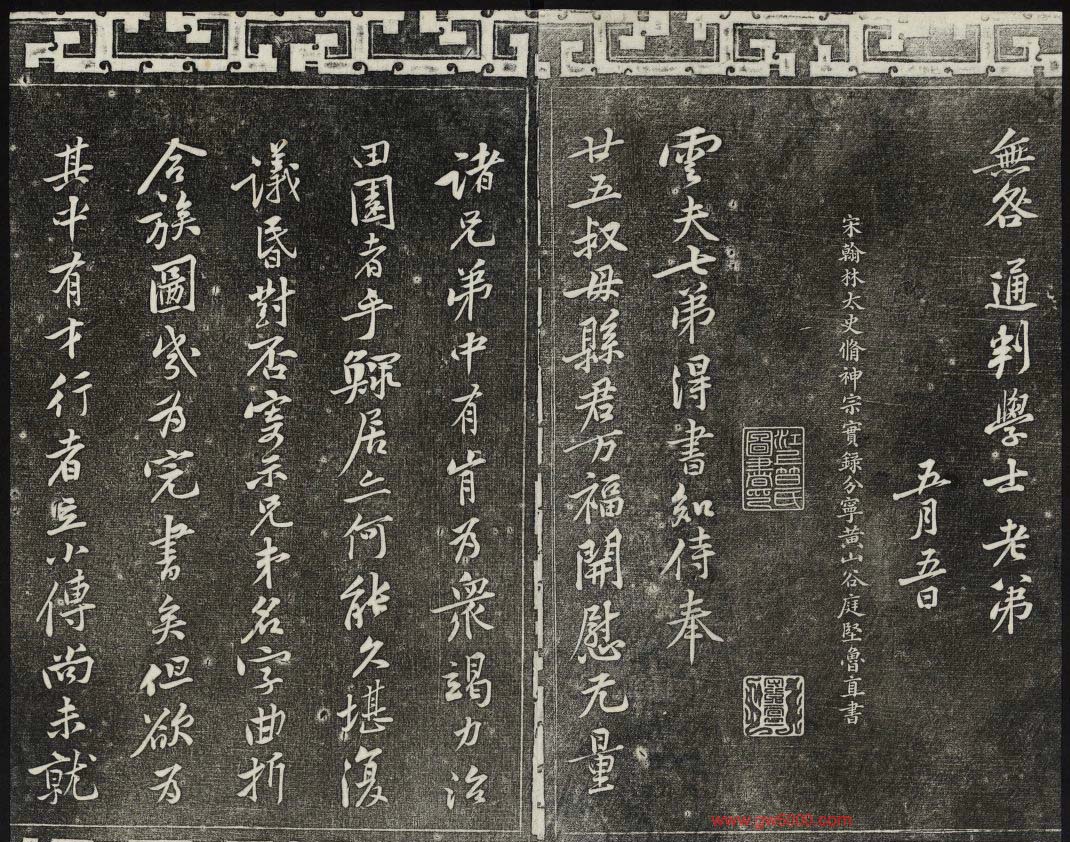 無咎通判學士老弟
五月五日
宋翰林太史脩神宗實録分寧黃山谷庭堅魯直書
雲夫七弟得書知侍奉
廿五叔母縣君万福開慰无量
諸兄弟中有肯為衆竭力治
田園者乎鰥居亦何能久堪復
議昏對否寄示兄弟名字曲折
合族圖幾為完書矣但欲為
其中有才行者立小傳尚未就
www.gwf600.com